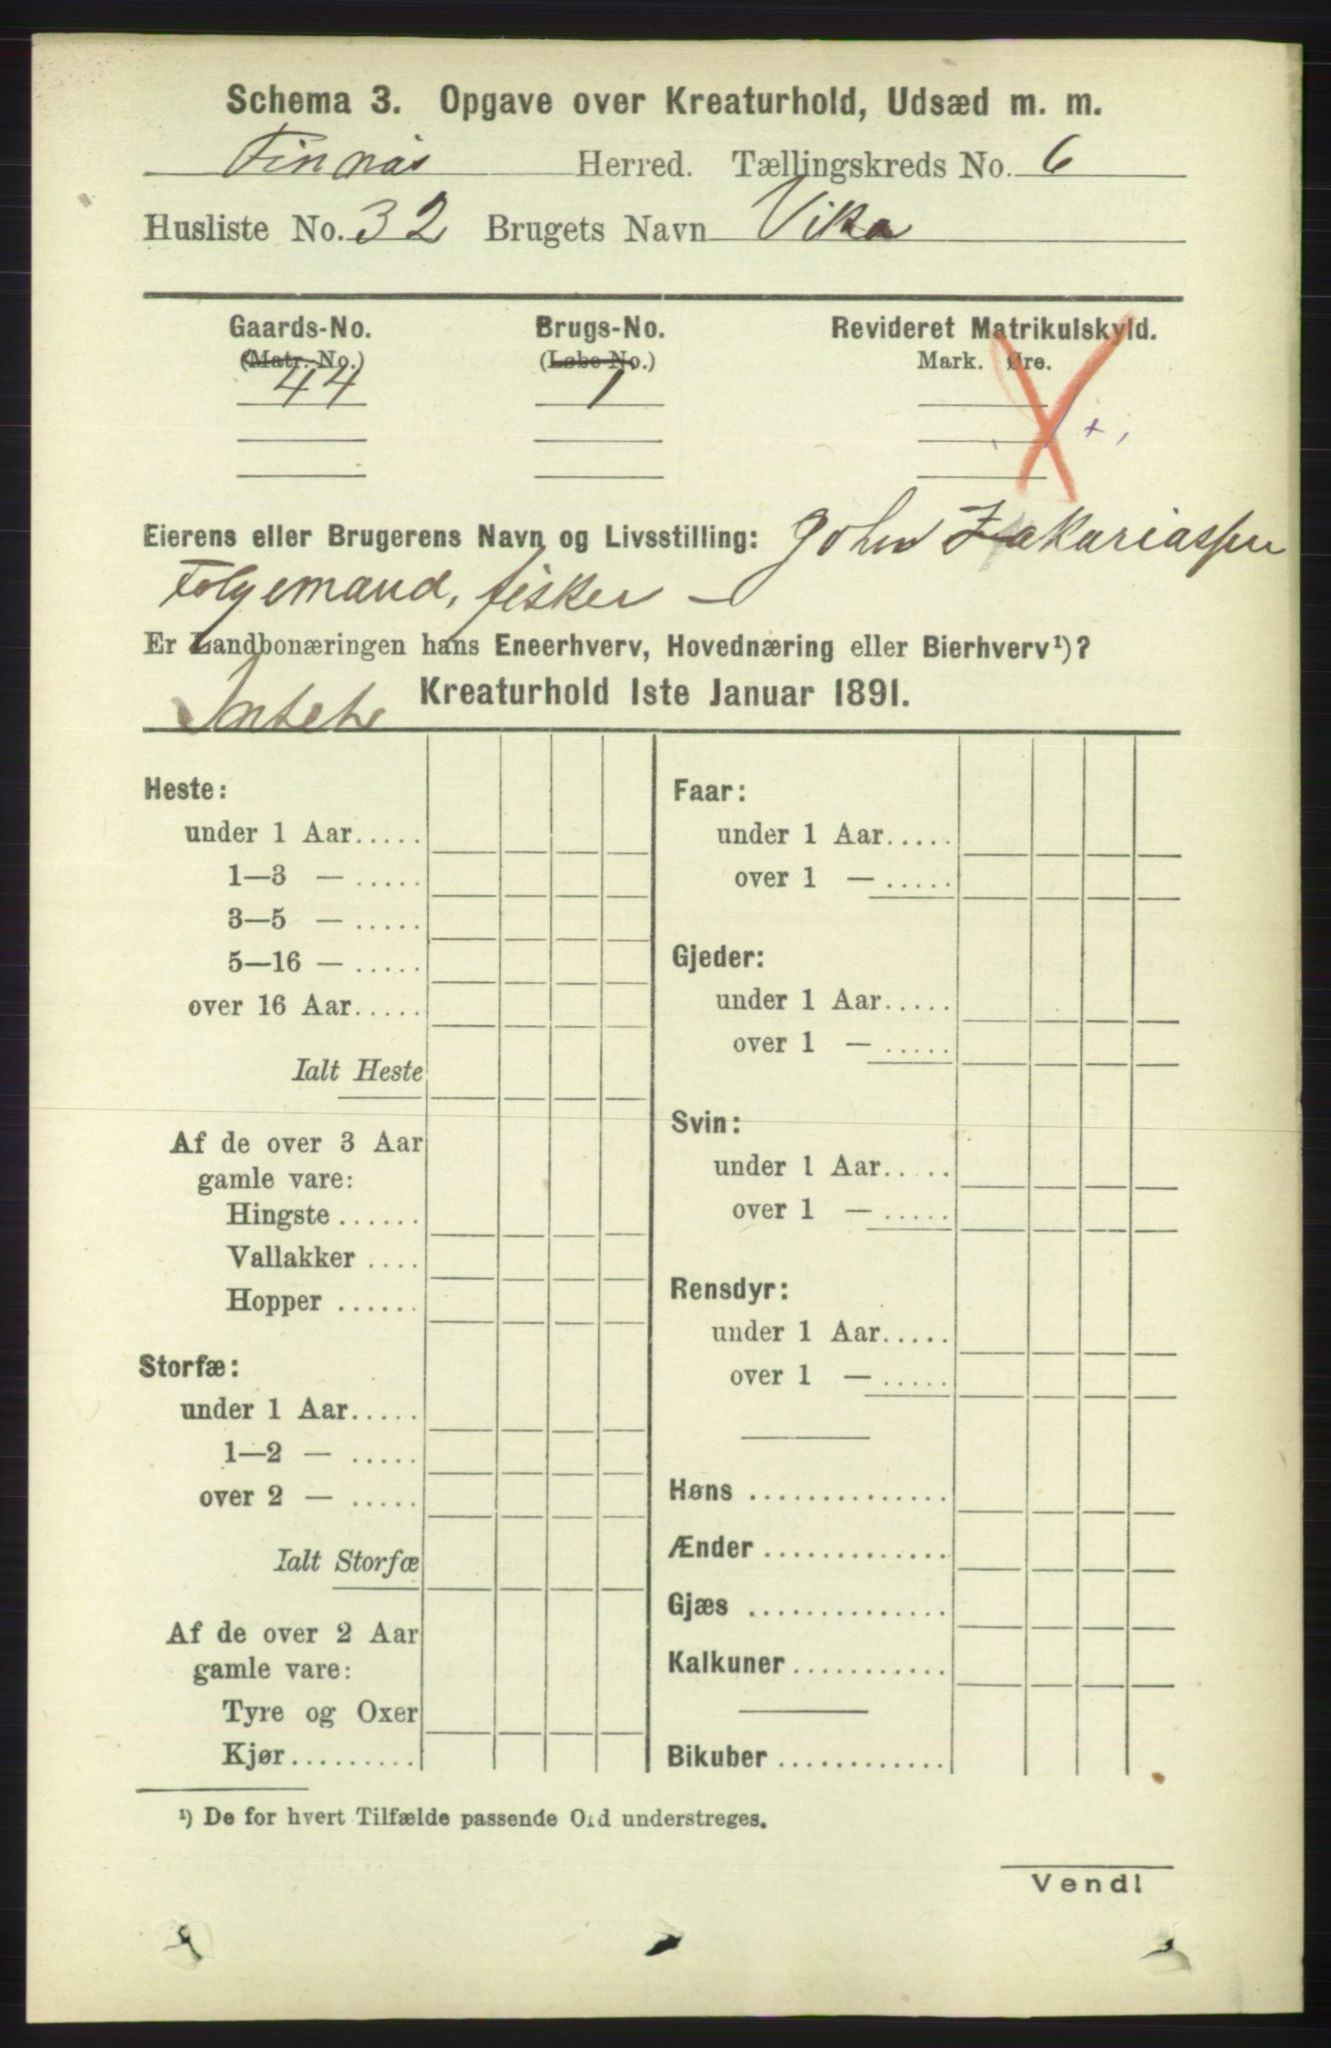 Schema 3. Opgave over Kreaturhold, Udsæd m. m.
Finnås Herred. Tællingskreds No. 6
Husliste No. 32 Brugets Navn Vika
Gaards-No. Brugs-No. Revideret Matrikulskyld.
(Matr.-No.) (Løbe-No.) Mark. Øre.
44 1
Eierens eller Brugerens Navn og Livsstilling: John Zakariassen
Følgemand, fisker —
Er Landbonæringen hans Eneerhverv, Hovednæring eller Bierhverv¹)?
Intet Kreaturhold 1ste Januar 1891.
Heste:
under 1 Aar.....
1—3 — .....
3—5 — .....
5—16 — .....
over 16 Aar.....
Ialt Heste
Af de over 3 Aar
gamle vare:
Hingste ......
Vallakker ....
Hopper ......
Storfæ:
under 1 Aar.....
1—2 — .....
over 2 — .....
Ialt Storfæ
Af de over 2 Aar
gamle vare:
Tyre og Oxer
Kjør.........
Faar:
under 1 Aar.....
over 1 — .....
Gjeder:
under 1 Aar.....
over 1 — .....
Svin:
under 1 Aar.....
over 1 — .....
Rensdyr:
under 1 Aar.....
over 1 — .....
Høns ..............
Ænder .............
Gjæs ..............
Kalkuner...........
Bikuber ............
¹) De for hvert Tilfælde passende Ord understreges.
Vend!